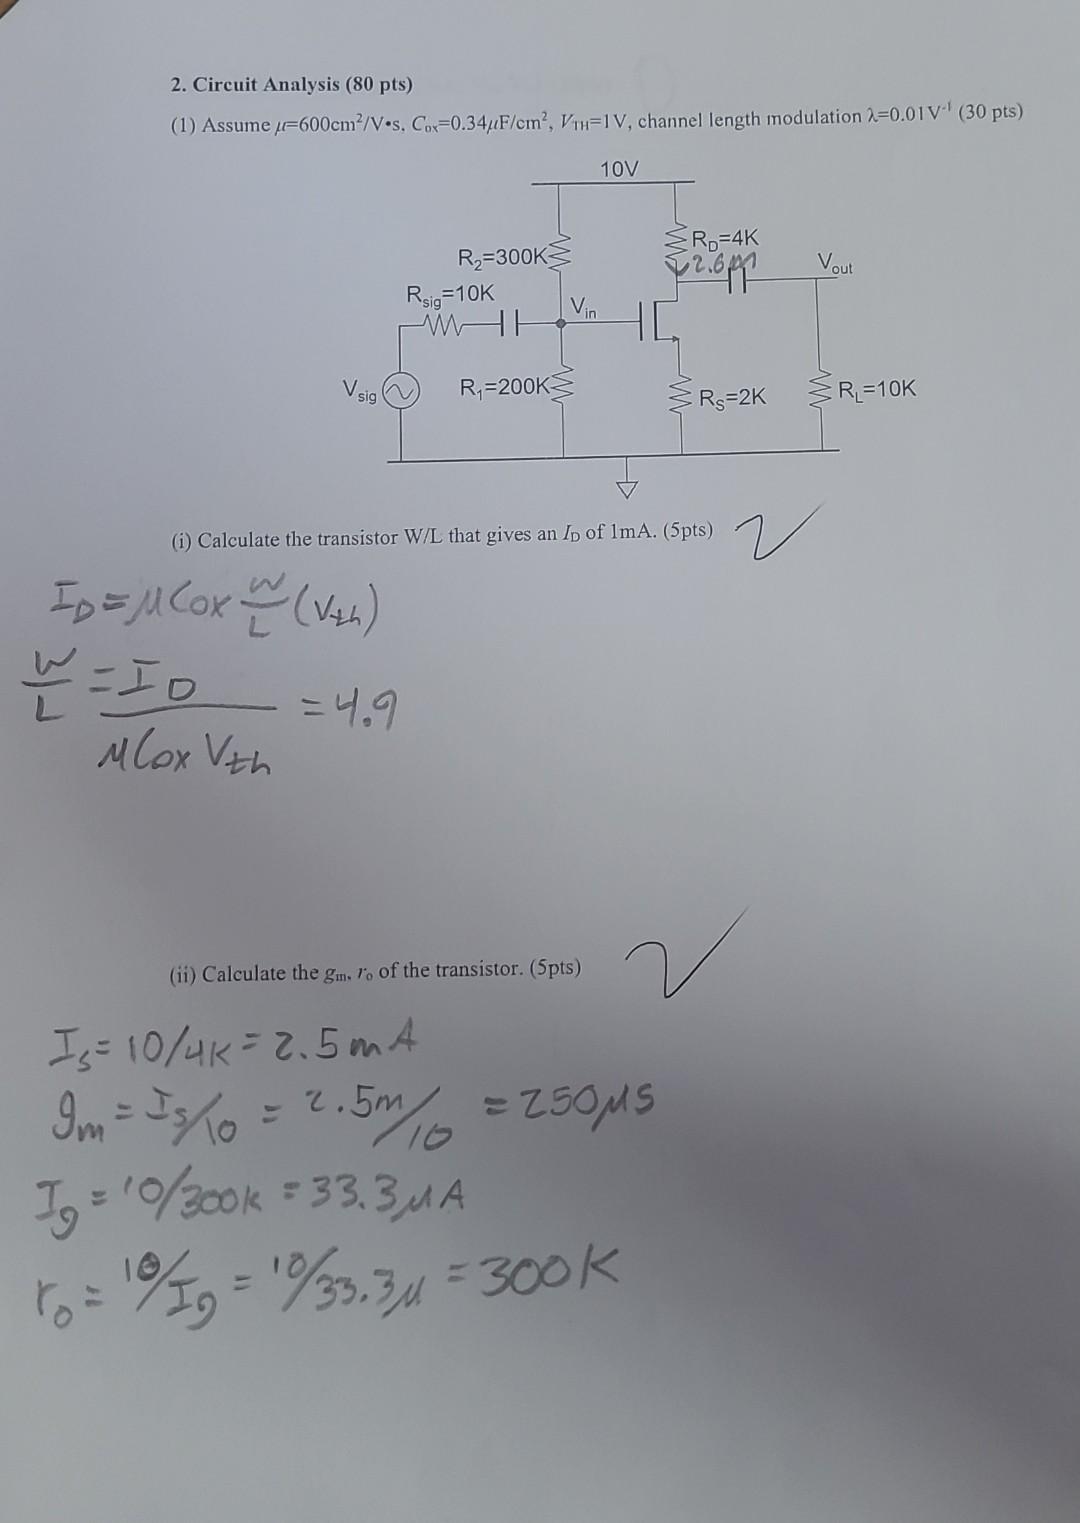 2. Circuit Analysis (80 pts)
(1) Assume μ=600cm²/V•s, Cox=0.34μF/cm², VTH=1V, channel length modulation λ=0.01V⁻¹ (30 pts)
10V
R₂=300K
RD=4K
Vout
Rsig=10K
Vin
Vsig
R₁=200K
RS=2K
RL=10K
(i) Calculate the transistor W/L that gives an ID of 1mA. (5pts)
ID = μCox W/L (Vth)
W/L = ID / μCox Vth = 4.9
(ii) Calculate the gm, ro of the transistor. (5pts)
Is = 10/4K = 2.5mA
gm = Is/10 = 2.5m/10 = 250μS
Ig = 10/300K = 33.3μA
ro = 10/Ig = 10/33.3μ = 300K